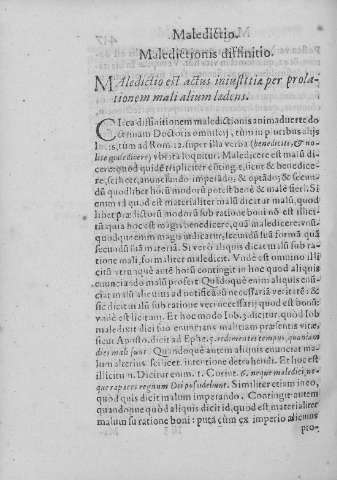 Maledictio.
Maledictionis diffinitio.
Maledictio est actus iniustitiæ per prola-
tionem mali alium lædens.
Circa diffinitionem maledictionis animaduerte do
ctrinam Doctoris omnibꝰ, tum in pluribus alijs
locis, tum ad Rom. 12. super illa verba (benedicite, & no-
lite maledicere) vbi ita loquitur. Maledicere est malū di-
cere: quod quidē tripliciter cōtingit, sicut & benedice-
re, scilicet, anuntiando imperādo, & optādo; & secun-
dū quodlibet horū modorū potest benè & malè fieri. Si
enim id quod est materialiter malū dicitur malū, quod
libet prædictorū modorū sub ratione boni nō est illici-
tū quia hoc est magis benedicere, quā maledicere. vnū-
quodque enim magis iudicatur, secundū suā formā quā
secundū suā materiā. Si verò aliquis dicat malū sub ra-
tione mali, formaliter maledicit. Vndè est omnino illi
citū
enunciando malū profert. Quādoquè enim aliquis enū-
ciat malū alienius ad notificādū necessariā veritatē: &
sic dicit malū sub ratione veri necessarij quod est bonū:
vndè est licitum. Et hoc modo Iob. 3. dicitur, quòd Iob
maledixit diei suo enuntians malitiam præsentis vitæ,
sicut Apostò. dicit ad Ephe. 5. redimentes tempus, quoniam
dies mali sunt. Quandoquè autem aliquis enunciat ma-
lum alterius, scilicet, intentione detrahendi. Et hoc est
illicitum. Dicitur enim. 1. Corint. 6. neque maledici, ne-
que rapaces regnum Dei possidebunt. Similiter etiam in eo,
quod quis dicit malum imperando. Contingit autem
quandoque quòd aliquis dicit id, quod est materialiter
malum su ratione boni: putà cùm ex imperio alicuius
pro-